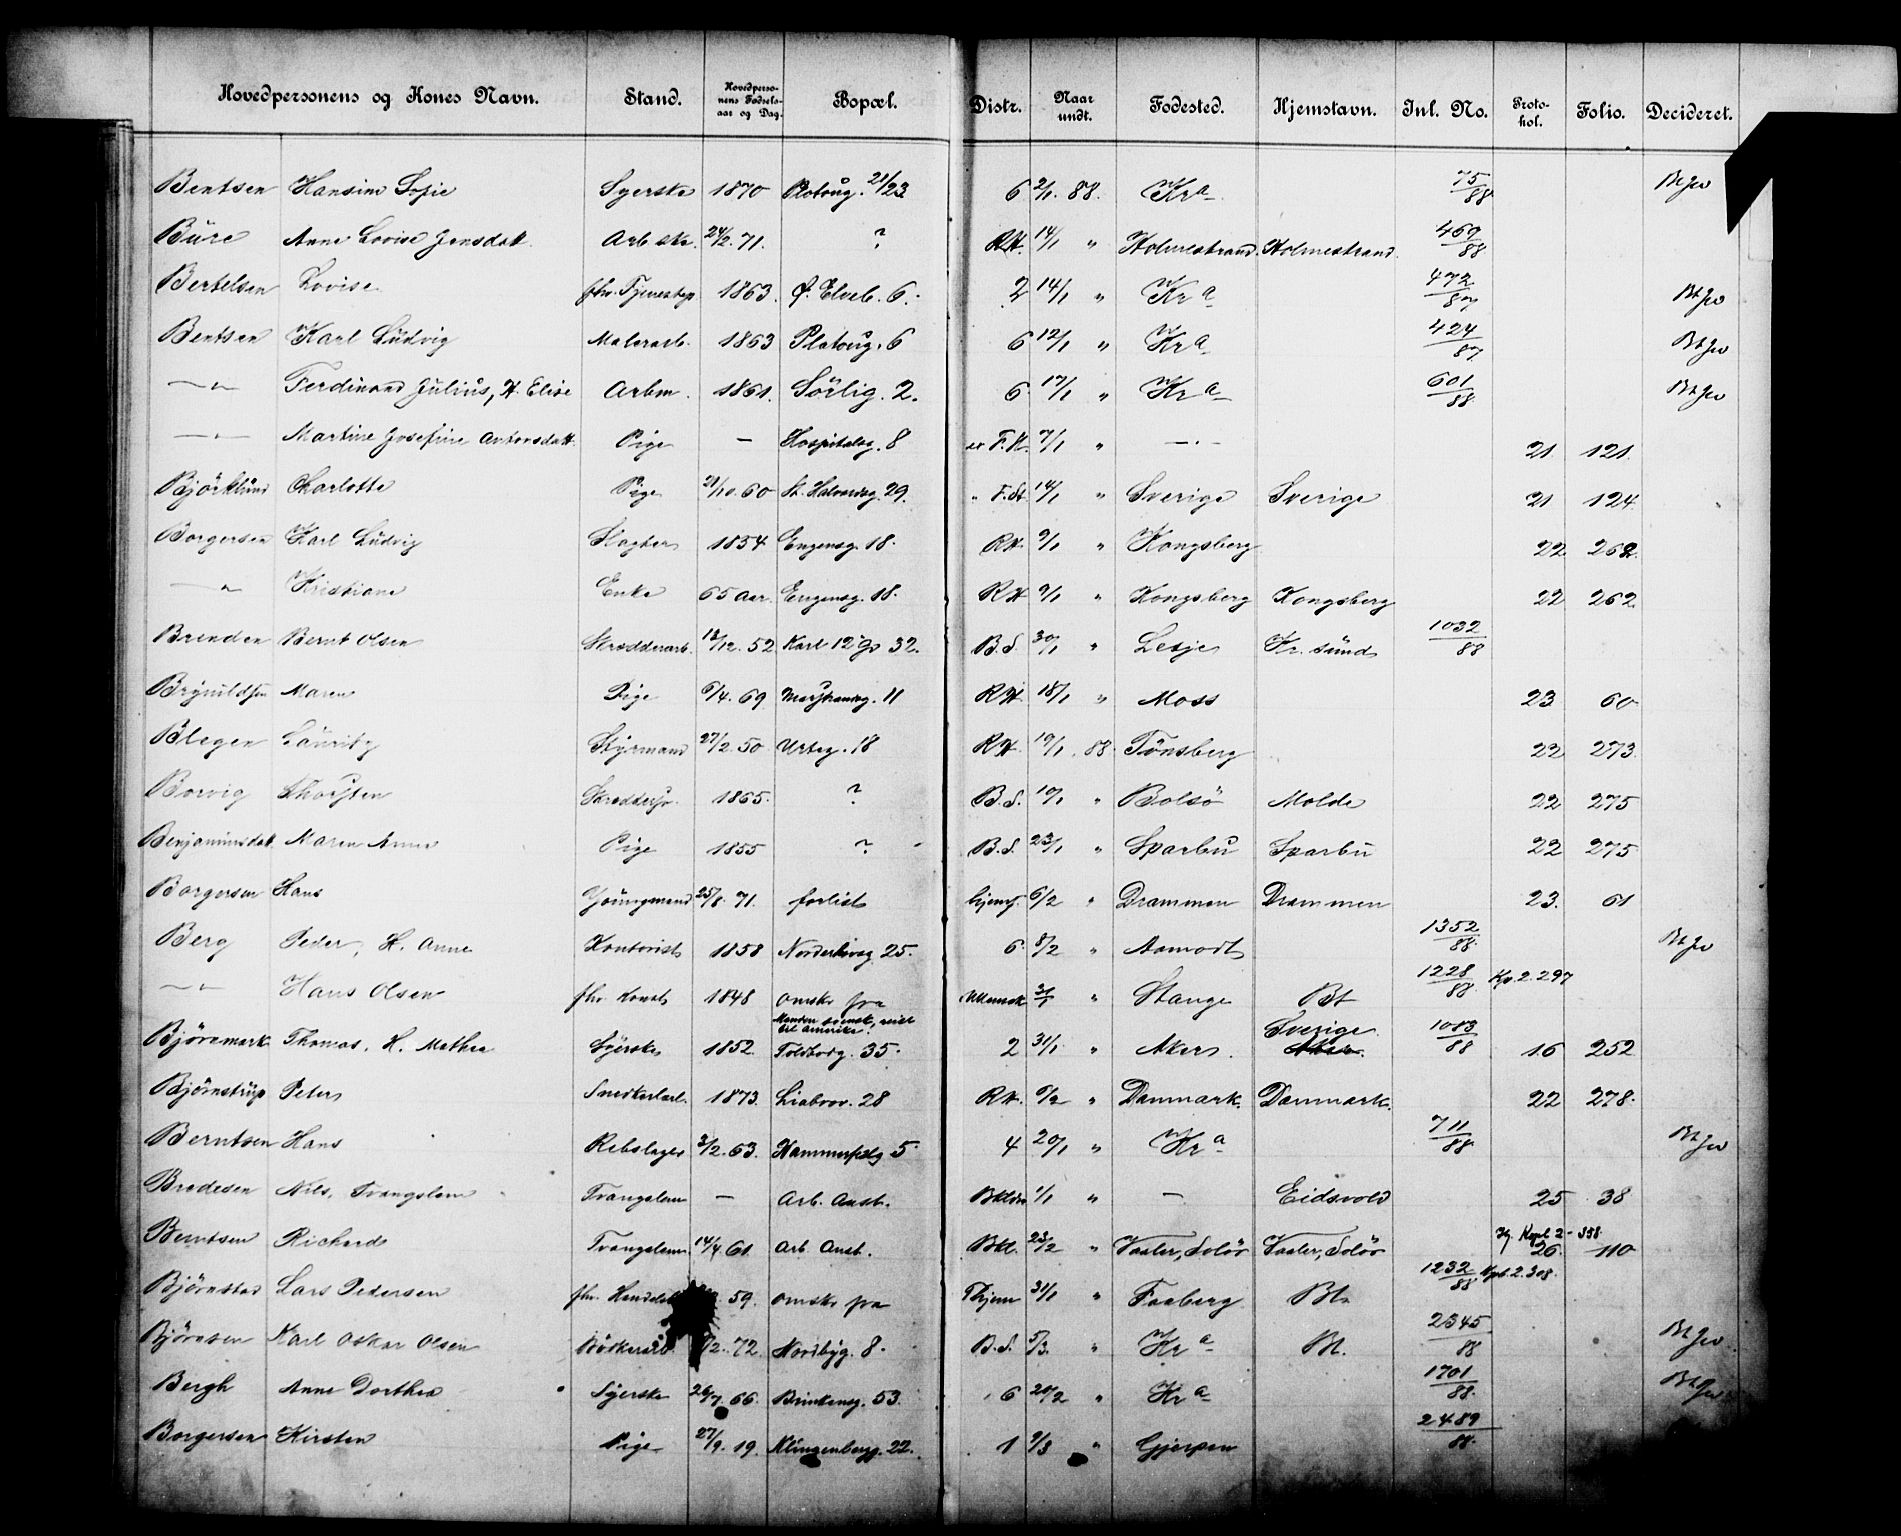 Hovedpersonens og Kones Navn. Stand. Hovedperso-nens Fødsels-aar og Dag. Bopæl. Distr. Naar undt. Fødested. Hjemstavn. Inl. No. Proto-kol. Folio. Decideret.
Bentsen Hansine Sofie Syerske 1870 Platoug. 21/23 6 2/1 88. Kra 75/88
Bure Anne Lovise Jensdatt. Arb.ske. 24/2.71. ? RH. 14/1 " Holmestrand. Holmestrand. 469/88
Bertelsen Lovise fhv. 1863. Ø. Elveb. 6. 2 14/1 " Kra 472/87
Bentsen Karl Ludvig Malerarb. 1863 Platoug. 6 6 12/1 " Kra 424/87
—"— Ferdinand Julius, H. Elise Arbm. 1861. Sörlig. 2. 6 17/1 " Kra 601/88
—"— Martine Josefine Antonsdatt. Pige — Hospitalsg. 8 7/1 " —"— 21. 121.
Björklund Charlotte Pige 21/10.60 St. Halvardsg. 29. " 14/1 " Sverige Sverige 21 124
Borgersen Karl Ludvig Slagter 1854 Engensg. 18. RH. 9/1 " Kongsberg 22 262
—"— Kristiane Enke 65 Aar. Engensg. 18. RH 9/1 " Kongsberg Kongsberg 22 262.
Brenden Bernt Olsen Skrædderarb. 12/12.52 Karl 12 Gd 32. B.S. 30/1 " Lesje Kr.sund 1032/88
Brynildsen Maren Pige 6/4.69 11 RH. 18/1 " Moss 23 60
Blegen Lauritz Styrmand 27/2.50 Urteg. 18 RH. 19/1 88. Tönsberg 22 273.
Borvig Thorsten Skræddersv. 1865. ? B.S. 10/1 " Bolsö Molde 22 275
Benjaminsdatt. Maren Anna Pige 1855 ? B.S. 23/1 " Sparbu Sparbu 22 275
Borgersen Hans Youngmand 25/8.71. forlist hjemf. 6/2 " Drammen Drammen 23. 61
Berg Peder, H. Anne Kontorist 1858 25. 6 8/2 " Aamodt 1352/88
—"— Hans Olsen fhv. Konst. 1848 omskr fra 3/1 " Stange Bt 1228/88 Kp. 2. 297
Manden svensk, reist til Amerika.
Björnmark Thomas, H. Mathea Syerske 1852. Toldbodg. 35. 2 31/1 " Aker. Sverige 1083/88 16 252
Björnstrup Peter Snedkerlærl. 1873. 28 RH. 6/2 " Danmark. Danmark. 22 278.
Berntsen Hans Rebslager 3/2.63. 5 4 20/1 " Kra 711/88
Bredesen Nils, Tvangslem Tvangslem — Arb. Anst. 1/1 " — Eidsvold 25 38
Berntsen Richard Tvangslem 14/4.61. Arb. Anst. Bkl. 23/2 " Vaaler, Solör Vaaler, Solör Kopb 2 - 358 26. 110
Björnstad Lars Pedersen fhv. 59. omskr fra Thjem 31/1 " Faaberg Bt. 1232/88 Kpb. 2. 308.
Björnsen Karl Oskar Olsen Bödkerarb. 2.72. Nordbyg. 8. B.S. 5/3. " Kra Bt. 2345/88
Bergh Anne Dorthea Syerske 26/7.66. Brinkeng. 53. 6 20/2 " Kra 1701/88.
Borgersen Kirsten Pige 27/9.19. Klingenbergg. 22. 1 9/3 " Gjerpen 2489/88.